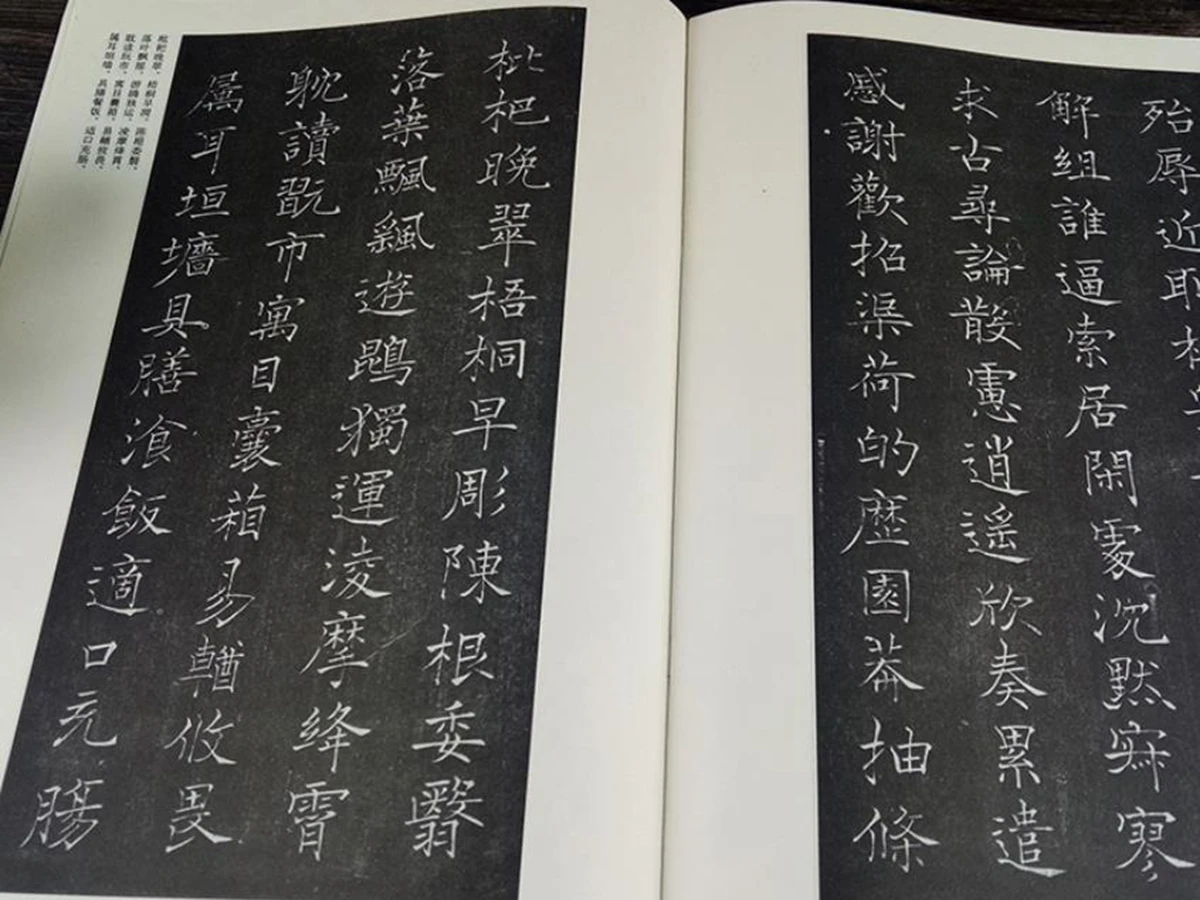 殆辱近耻林
解組誰逼索居閑處沈黙寂寥
求古尋論散慮逍遥欣奏累遣
慼謝歡招渠荷的歷園莽抽條
枇杷晚翠梧桐早彫陳根委翳
落葉飄飖遊鵾獨運淩摩絳霄
耽讀翫市寓目囊葙易輶攸畏
属耳垣墻具膳飡飯適口充腸
枇杷晚翠，梧桐早凋，陈根委翳，
落叶飘飖，游鹍独运，凌摩绛霄，
耽读玩市，寓目囊箱，易輶攸畏，
属耳垣墙，具膳餐饭，适口充肠。